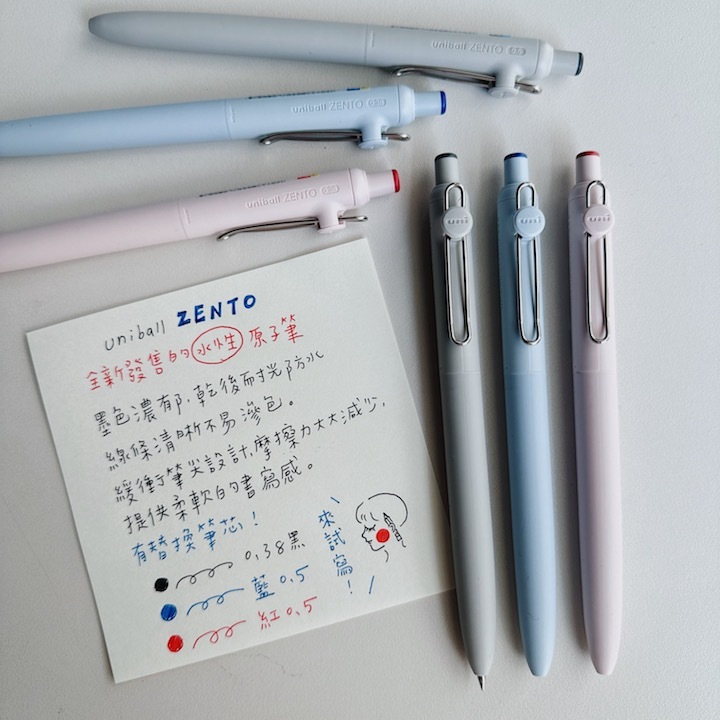 uniball ZENTO 0.5
uniball ZENTO 0.38
uniball ZENTO
uni
uni
uni
uniball ZENTO
全新發售的水性原子筆
墨色濃郁,乾後耐光防水
線條清晰不易滲色。
緩衝筆尖設計,摩擦力大大減少,
提供柔軟的書寫感。
有替換筆芯!
0.38黑
藍0.5
紅0.5
來試寫!